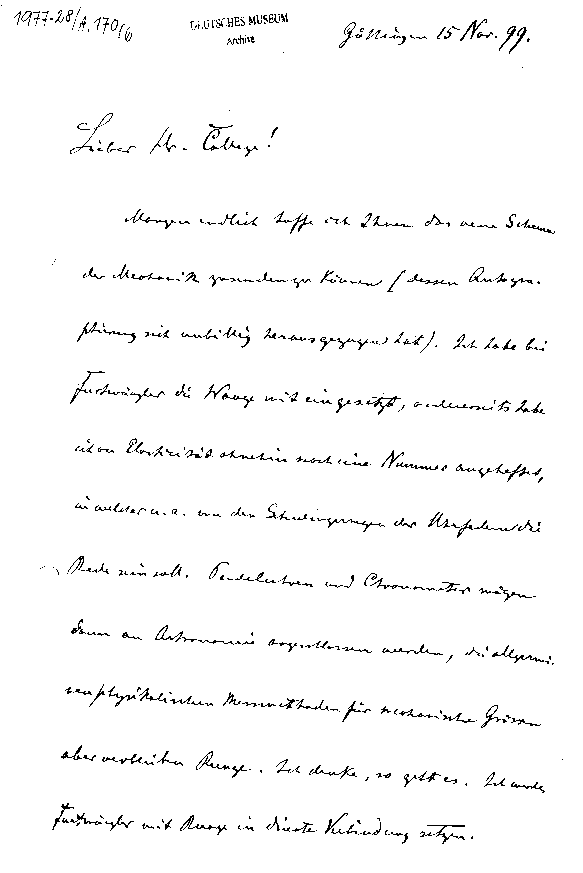 1977-28/A, 170/6
DEUTSCHES MUSEUM
Archive
Göttingen 15 Nov. 99.
Lieber Hr. College!
Morgen endlich hoffe ich Ihnen das neue Schema
der Mechanik zusenden zu können (dessen Autogra-
phirung sich unbillig herausgezogen hat). Ich habe bei
Furtwängler die Waage mit eingesetzt, andererseits habe
ich an Elasticität ohnehin noch eine Nummer angeheftet,
in welcher u. a. von den Schwingungen der Uhrfedern die
Rede sein soll. Pendeluhren und Chronometer mögen
dann an Astronomie angeschlossen werden, die allgemei-
nen physikalischen Messmethoden für mechanische Grössen
aber verbleiben Runge. Ich denke, so geht es. Ich werde
Furtwängler mit Runge in directe Verbindung setzen.